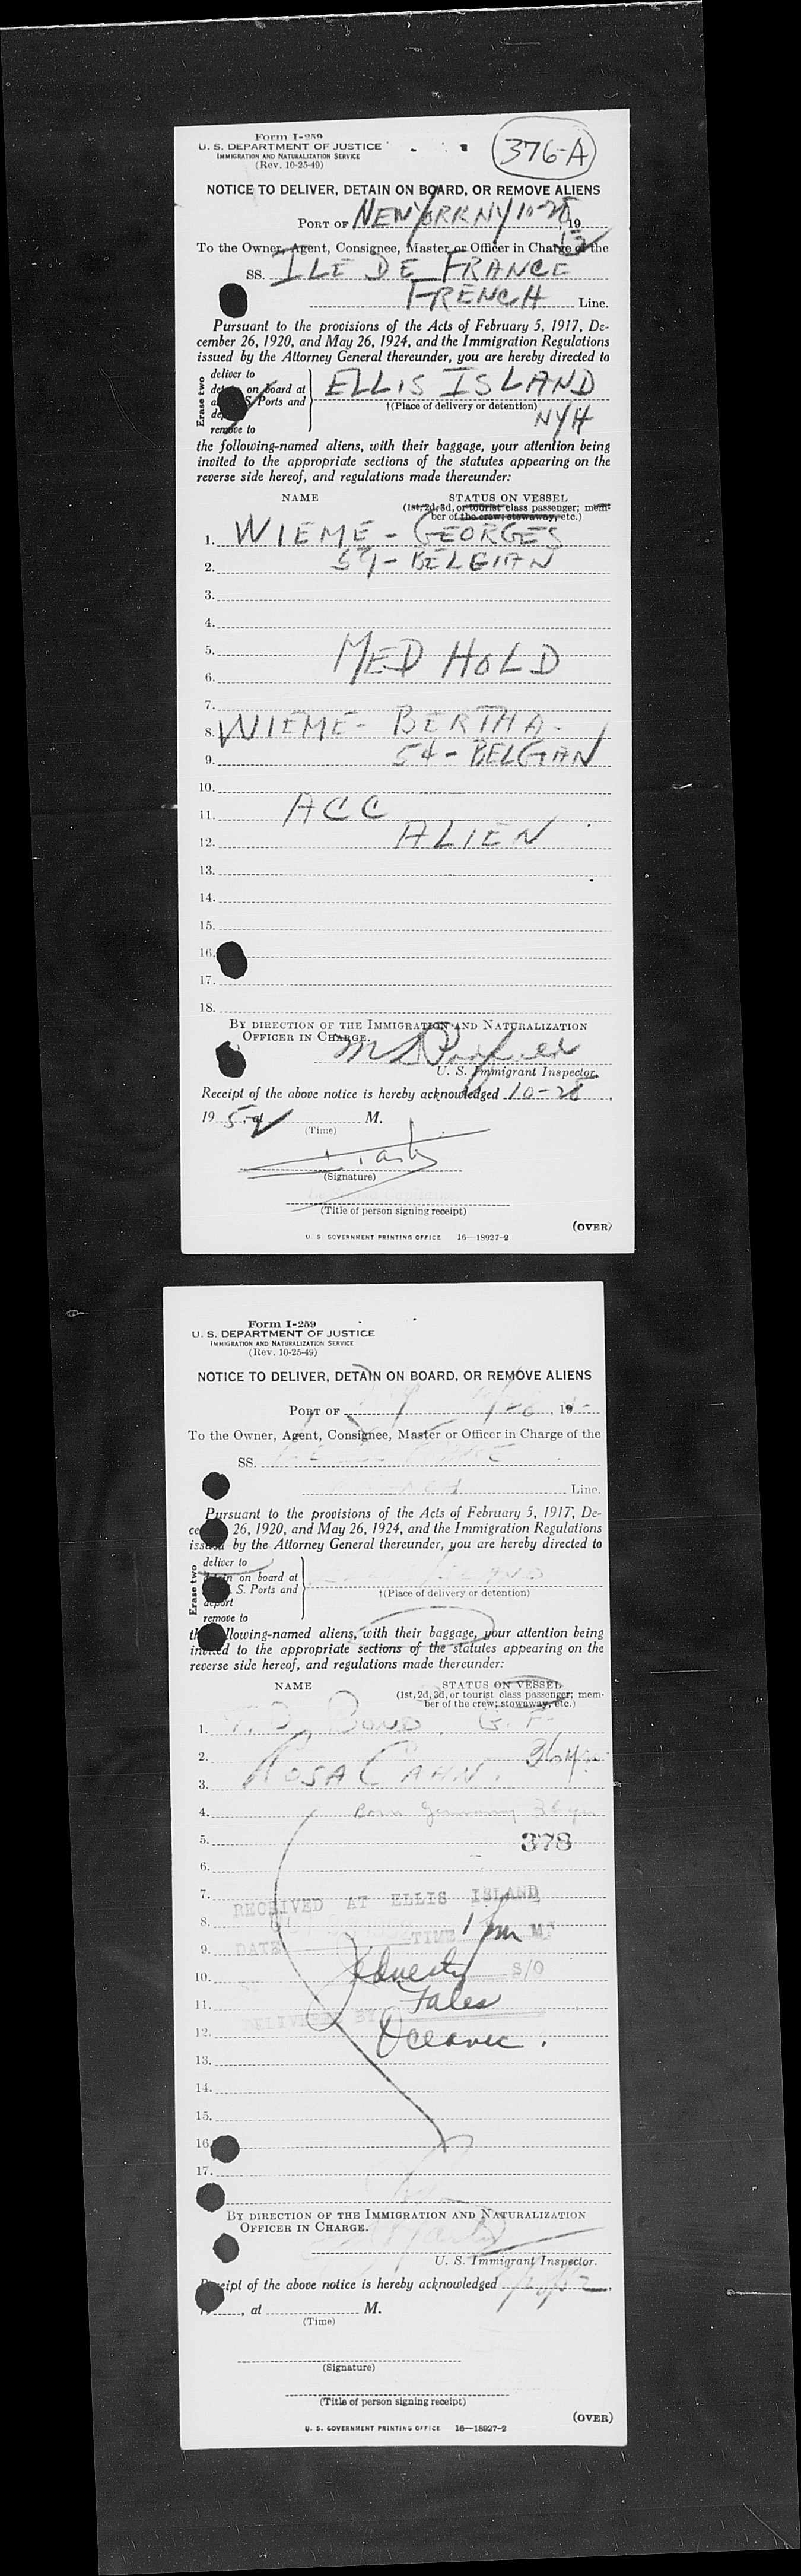 Form I-259
U. S. DEPARTMENT OF JUSTICE
IMMIGRATION AND NATURALIZATION SERVICE
(Rev. 10-25-49)
376-A
NOTICE TO DELIVER, DETAIN ON BOARD, OR REMOVE ALIENS
PORT OF NEW YORK NY 10-28, 19 52
To the Owner, Agent, Consignee, Master or Officer in Charge of the
SS. ILE DE FRANCE
FRENCH Line.
Pursuant to the provisions of the Acts of February 5, 1917, De-
cember 26, 1920, and May 26, 1924, and the Immigration Regulations
issued by the Attorney General thereunder, you are hereby directed to
Erase two
deliver to
on board at
S. Ports and
remove to
ELLIS ISLAND
†(Place of delivery or detention)
NYH
the following-named aliens, with their baggage, your attention being
invited to the appropriate sections of the statutes appearing on the
reverse side hereof, and regulations made thereunder:
NAME STATUS ON VESSEL
(1st, 2d, 3d, or tourist class passenger; mem-
ber of the crew; stowaway, etc.)
1. WIEME - GEORGES
2. 59 - BELGIAN
3.
4.
5. MED HOLD
6.
7.
8. WIEME - BERTHA -
9. 54 - BELGIAN
10.
11. ACC
12. ALIEN
13.
14.
15.
16.
17.
18.
BY DIRECTION OF THE IMMIGRATION AND NATURALIZATION
OFFICER IN CHARGE.
U. S. Immigrant Inspector.
Receipt of the above notice is hereby acknowledged 10-28,
19 52 M.
(Time)
(Signature)
(Title of person signing receipt)
(OVER)
U. S. GOVERNMENT PRINTING OFFICE 16—18927-2
Form I-259
U. S. DEPARTMENT OF JUSTICE
IMMIGRATION AND NATURALIZATION SERVICE
(Rev. 10-25-49)
NOTICE TO DELIVER, DETAIN ON BOARD, OR REMOVE ALIENS
PORT OF , 19
To the Owner, Agent, Consignee, Master or Officer in Charge of the
SS.
Line.
Pursuant to the provisions of the Acts of February 5, 1917, De-
26, 1920, and May 26, 1924, and the Immigration Regulations
issued by the Attorney General thereunder, you are hereby directed to
Erase two
deliver to
on board at
S. Ports and
deport
remove to
†(Place of delivery or detention)
following-named aliens, with their baggage, your attention being
invited to the appropriate sections of the statutes appearing on the
reverse side hereof, and regulations made thereunder:
NAME STATUS ON VESSEL
(1st, 2d, 3d, or tourist class passenger; mem-
ber of the crew; stowaway, etc.)
1.
2. ROSA CAHN.
3.
4. Born Germany
5. 378
6.
7. RECEIVED AT ELLIS ISLAND
8.
9. DATE TIME 1 pm M
10. S/O
11. DELIVERED BY
12. Oceanic.
13.
14.
15.
16.
17.
BY DIRECTION OF THE IMMIGRATION AND NATURALIZATION
OFFICER IN CHARGE.
U. S. Immigrant Inspector.
Receipt of the above notice is hereby acknowledged
, at M.
(Time)
(Signature)
(Title of person signing receipt)
(OVER)
U. S. GOVERNMENT PRINTING OFFICE 16—18927-2